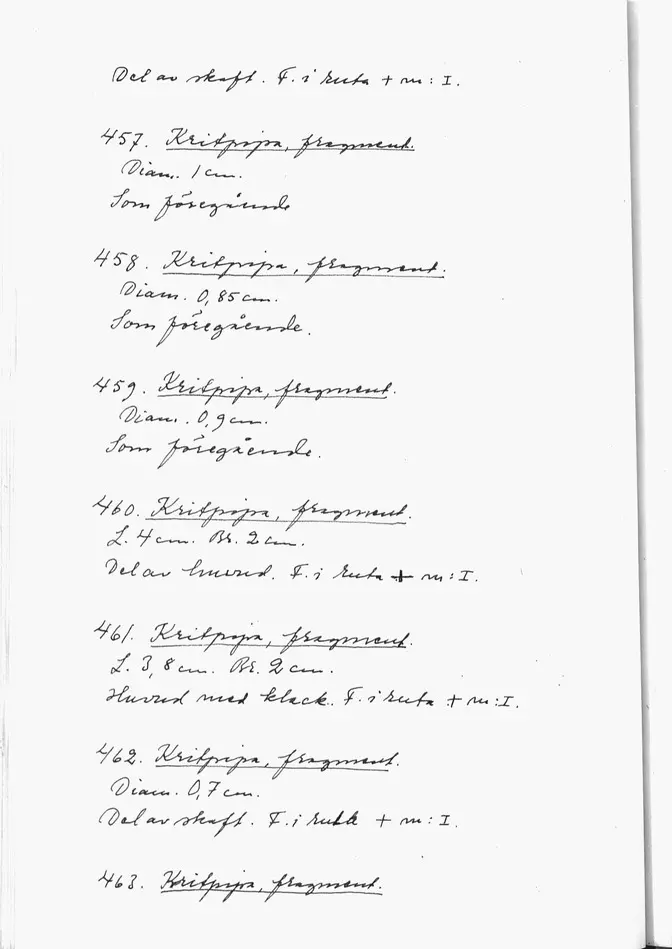 Del av skaft. F. i ruta + m : I.
457. Kritpipa, fragment.
Diam. 1 cm.
Som föregående
458. Kritpipa, fragment.
Diam. 0,85 cm.
Som föregående.
459. Kritpipa, fragment.
Diam. 0,9 cm.
Som föregående.
460. Kritpipa, fragment.
L. 4 cm. Br. 2 cm.
Del av huvud. F. i ruta + m : I.
461. Kritpipa, fragment.
L. 3,8 cm. Br. 2 cm.
Huvud med klack. F. i ruta + m : I.
462. Kritpipa, fragment.
Diam. 0,7 cm.
Del av skaft. F. i ruta + m : I.
463. Kritpipa, fragment.